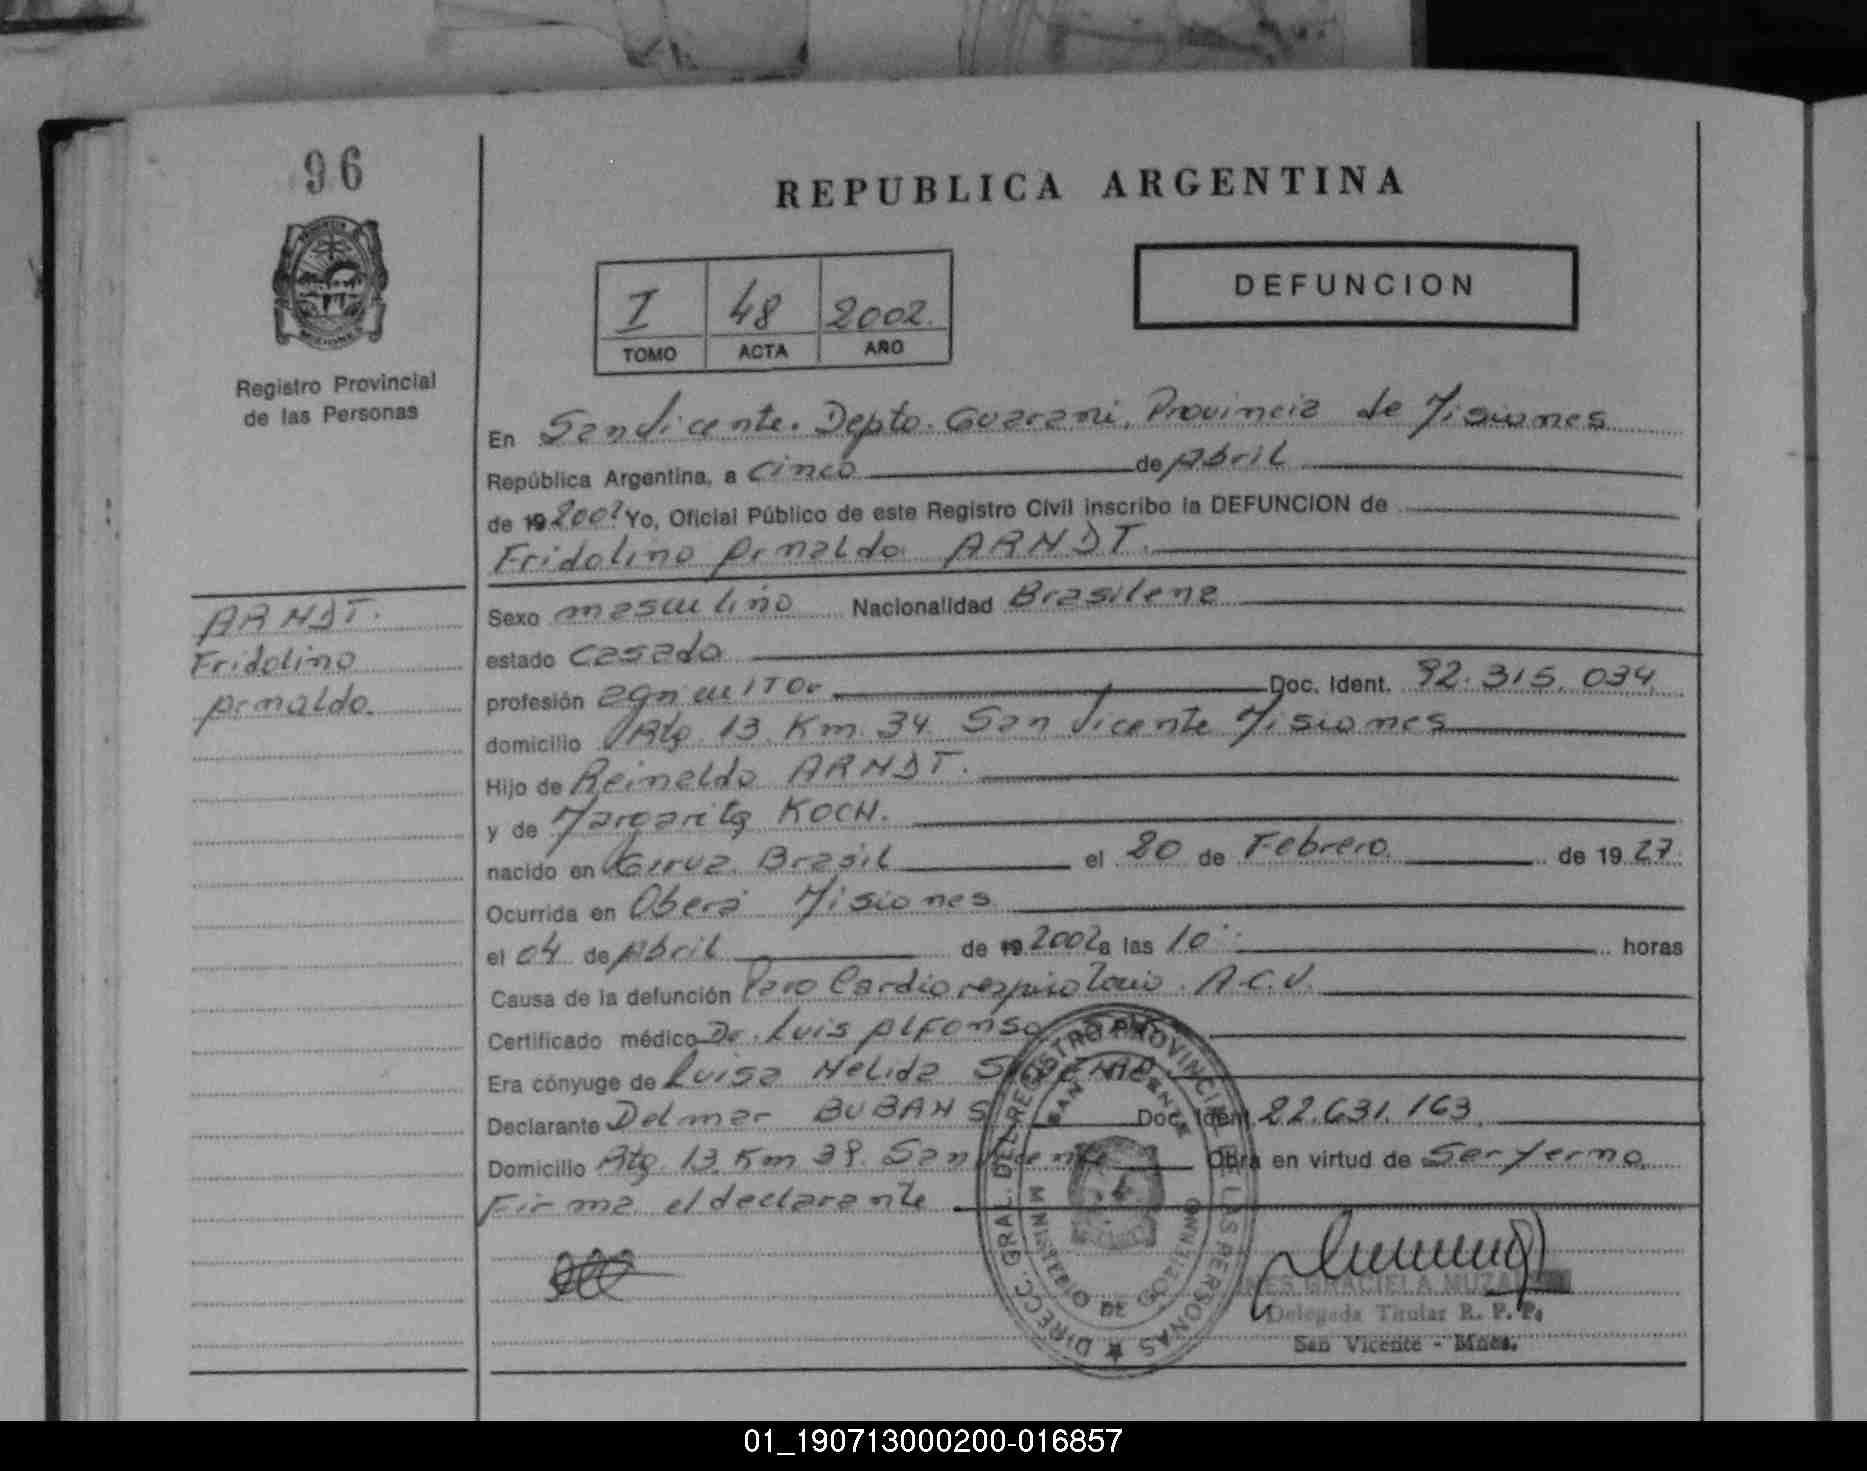 96
REPUBLICA ARGENTINA
DEFUNCION
I 48 2002.
TOMO ACTA AÑO
Registro Provincial
de las Personas
En San Vicente. Depto. Guarani, Provincia de Misiones
República Argentina, a cinco de Abril
de 19 2002 Yo, Oficial Público de este Registro Civil inscribo la DEFUNCION de
Fridolino Arnaldo ARNDT.
ARNDT.
Fridolino
Arnaldo.
Sexo masculino Nacionalidad Brasilena
estado casado
profesión agricultor Doc. Ident. 92.315.034
domicilio Rta 13 Km. 34 San Vicente Misiones
Hijo de Reinaldo ARNDT.
y de Margarita KOCH.
nacido en Brasil el 20 de Febrero de 19 27
Ocurrida en Oberá Misiones
el 04 de Abril de 19 2002 a las 10 horas
Causa de la defunción Paro Cardiorespiratorio. A.C.V.
Certificado médico Dr. Luis Alfonso
Era cónyuge de Luisa Nelida
Declarante Delmar BUBANS Doc. Ident. 22.631.163
Domicilio Rta 13 Km 39. San Vicente Obra en virtud de Ser Yerno
Firma el declarante
DIRECC. GRAL. DEL REGISTRO PROVINCIAL DE LAS PERSONAS
SAN VICENTE
MINISTERIO DE GOBIERNO
INES GRACIELA
Delegada Titular R. P. P.
San Vicente - Mnes.
01_190713000200-016857